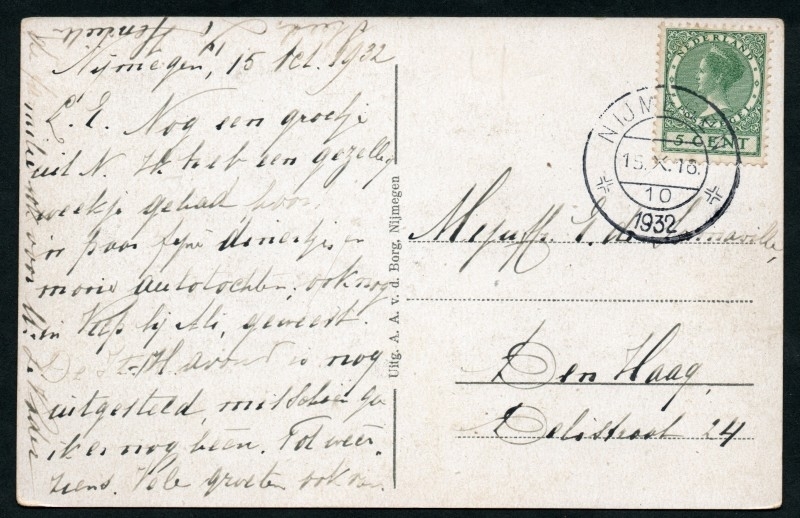 Nijmegen, 15 Oct. 1932
L. E. Nog een groetje
uit N. Ik heb een gezellig
weekje gehad hoor,
'n paar fijne dinertjes en
mooie autotochten, ook nog
in bij Ali, geweest.
De avond is nog
uitgesteld, misschien ga
ik er nog heen. Tot weer-
ziens. Vele groeten ook van
Uitg. A. A. v. d. Borg, Nijmegen
NEDERLAND
5 CENT
NIJMEGEN
15.X.18.
10
1932
Mejuffr. E. de
Den Haag
Delistraat 24